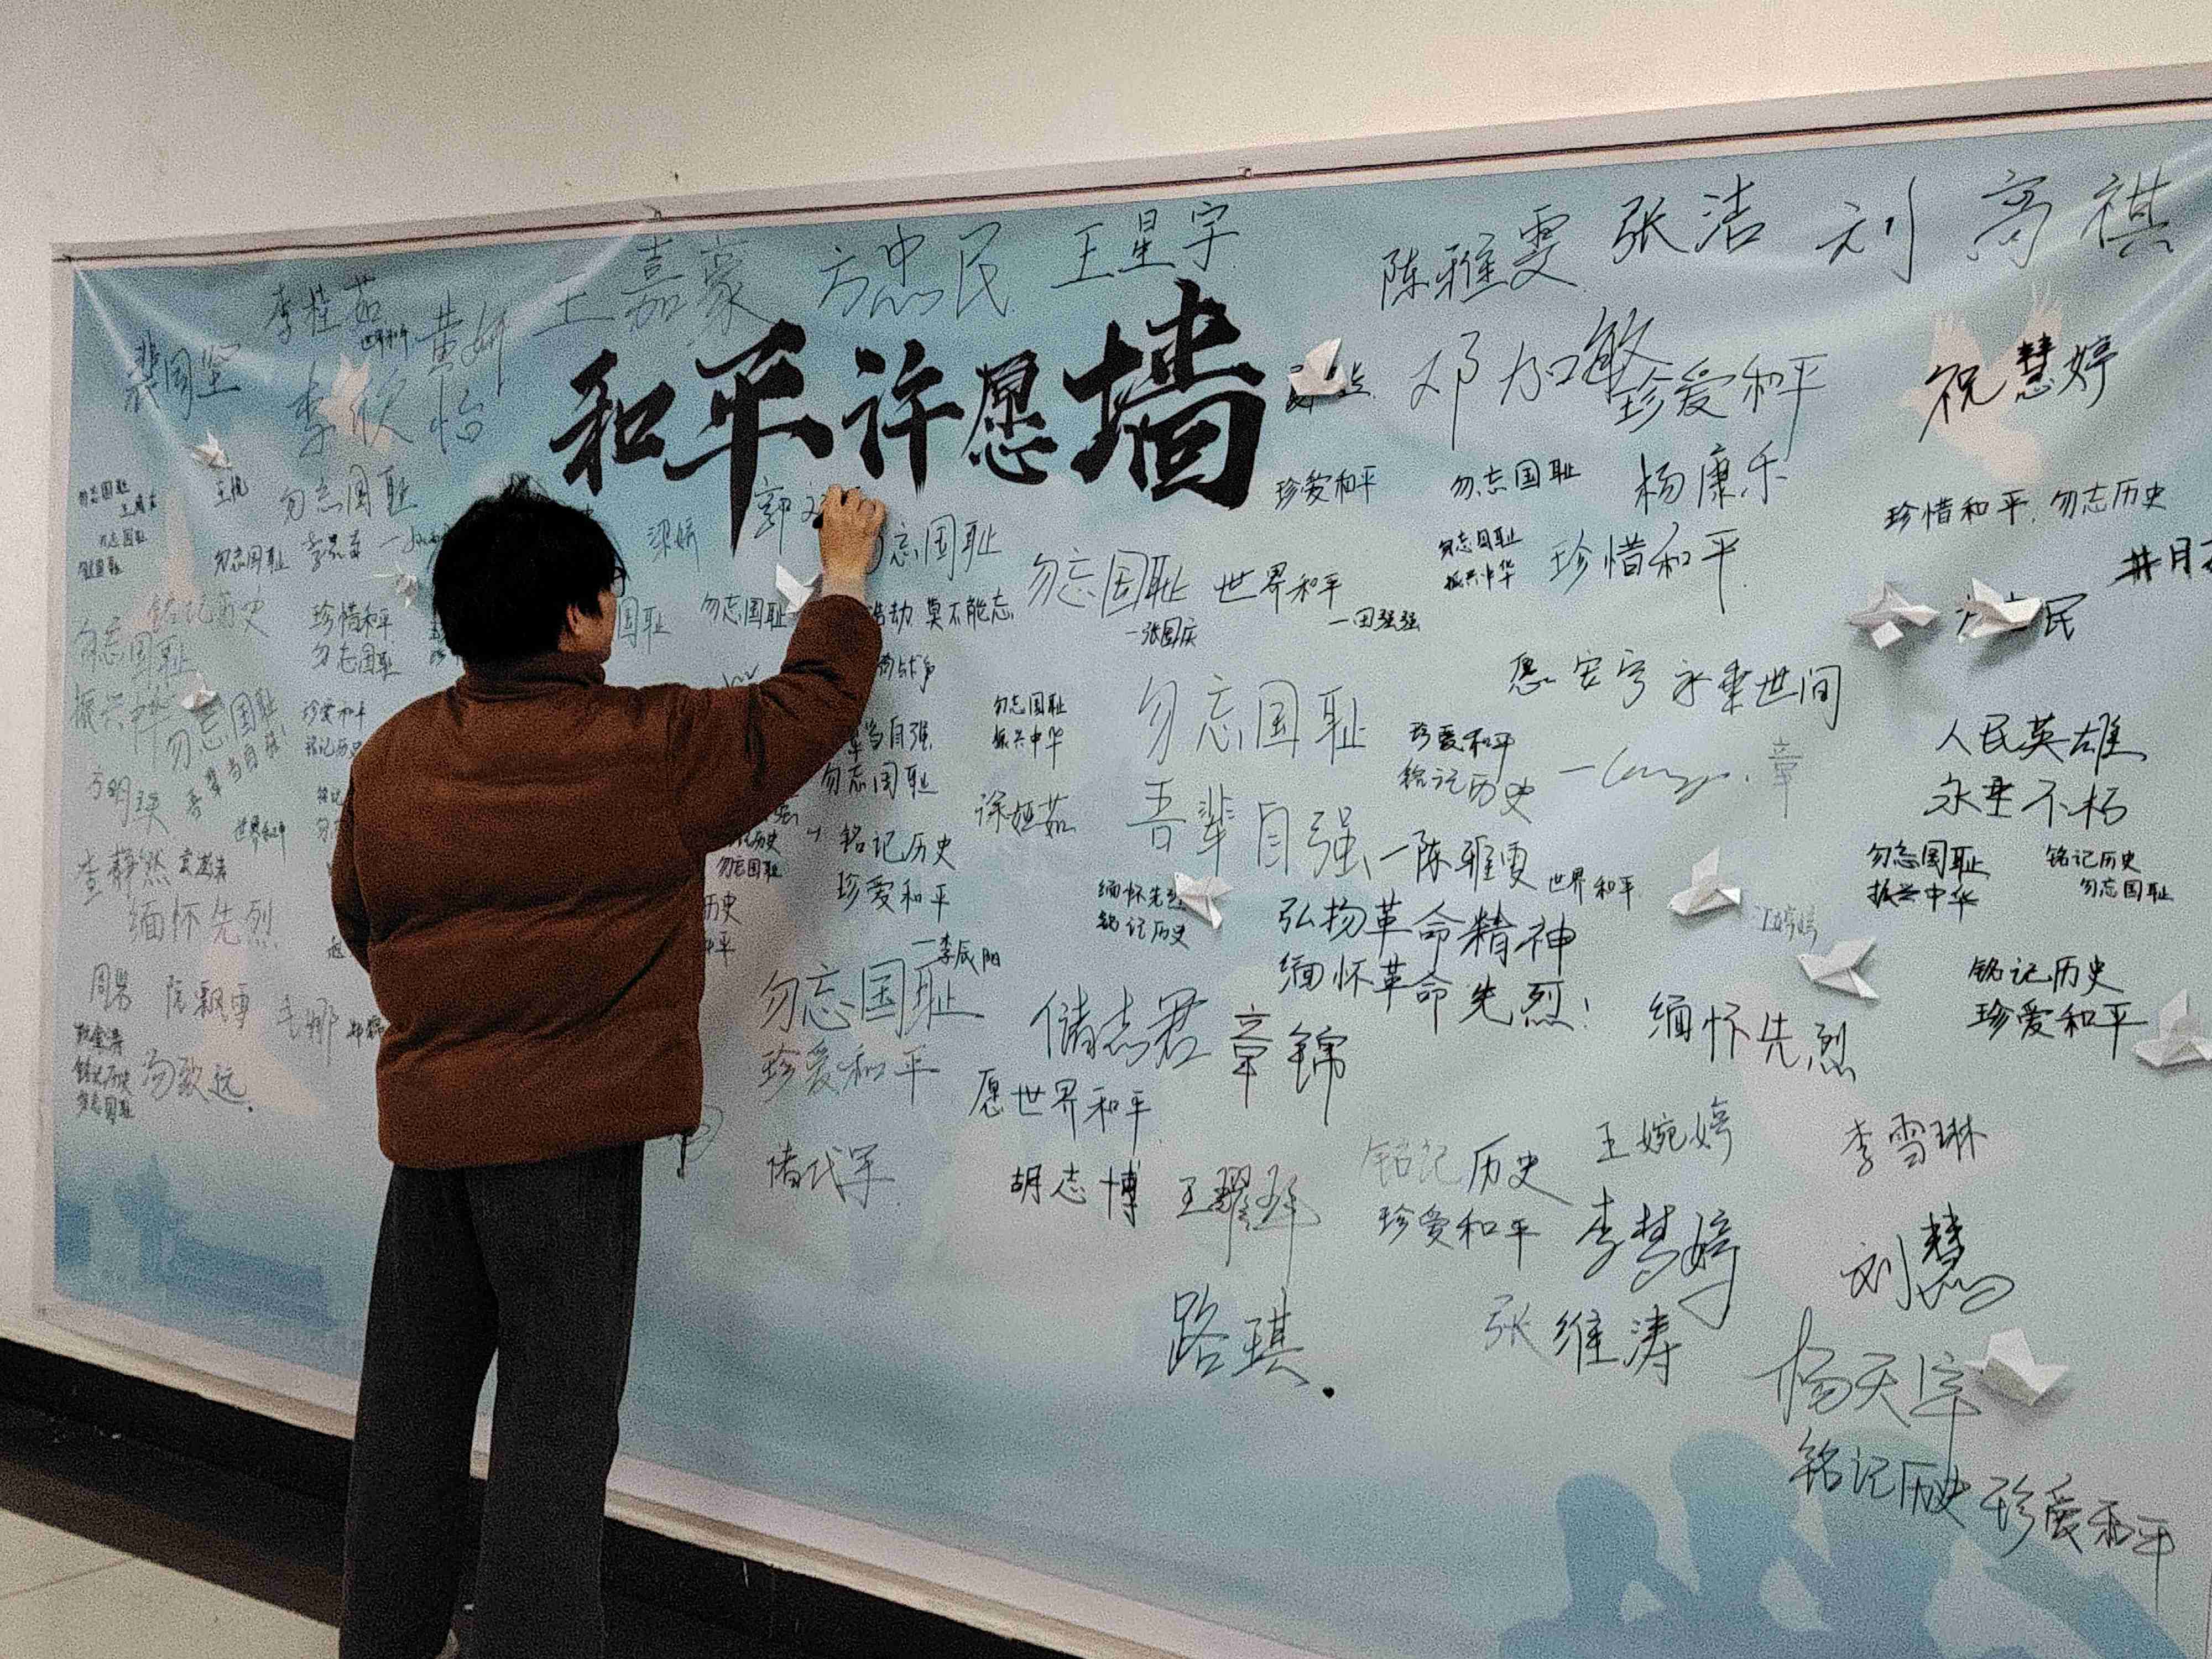 王嘉豪 方忠民 王星宇
陈雅雯 张洁 刘奇祺
李桂茹
世界和平
黄妍
裴国坚
李欣怡
和平许愿墙
邓加敏
珍爱和平
祝慧婷
勿忘国耻
勿忘国耻
珍爱和平
勿忘国耻
杨康乐
珍惜和平 勿忘历史
梁妍
郭
忘国耻
勿忘国耻
勿忘国耻
振兴中华
珍惜和平
勿忘国耻
世界和平
一田强强
一张国庆
铭记历史
珍惜和平
勿忘国耻
国耻
勿忘国耻
浩劫 莫不能忘
民
勿忘国耻
振兴中华
勿忘国耻
吾辈当自强!
珍爱和平
铭记历史
愿安宁永垂世间
勿忘国耻
振兴中华
勿忘国耻
吾辈自强
一陈雅雯
珍爱和平
铭记历史
章
人民英雄
永垂不朽
方明珠
世界和平
当自强
勿忘国耻
徐娅茹
铭记历史
珍爱和平
一李辰阳
历史
勿忘国耻
查静然
缅怀先烈
缅怀先烈
铭记历史
世界和平
弘扬革命精神
缅怀革命先烈!
勿忘国耻
振兴中华
铭记历史
勿忘国耻
铭记历史
珍爱和平
缅怀先烈
阮飘雪
毛娜
勿忘国耻
珍爱和平
储志君
章锦
愿世界和平
铭记历史
勿忘国耻
胡志博
王耀辉
铭记历史
珍爱和平
王婉婷
李雪琳
李梦婷
刘慧
路琪.
张维涛
杨天宇
铭记历史 珍爱和平